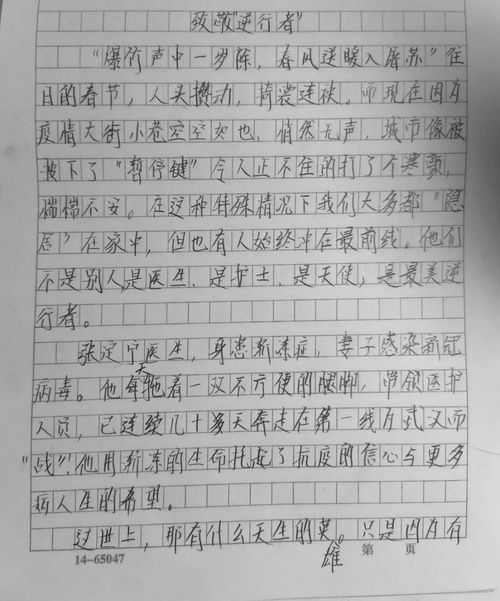 致敬“逆行者”
“爆竹声中一岁除，春风送暖入屠苏”往
日的春节，人头攒动，摩袭连袂。而现在因为
疫情大街小巷空空如也，悄然无声，城市像被
按下了“暂停键”令人止不住的打了个寒噤，
惴惴不安。在这种特殊情况下我们大多都“隐
居”在家中，但也有人始终冲在最前线。他们
不是别人是医生，是护士，是天使，是最美逆
行者。
张定宇医生，身患渐冻症，妻子感染新冠
病毒。他每天拖着一双不方便的腿脚，带领医护
人员，已连续几十多天奔走在第一线方式又而
“战”！他用渐冻的生命托起了抗疫的信心与更多
病人生的希望。
这世上，那有什么天生的英雄。只是因为有
14-65047 第 页